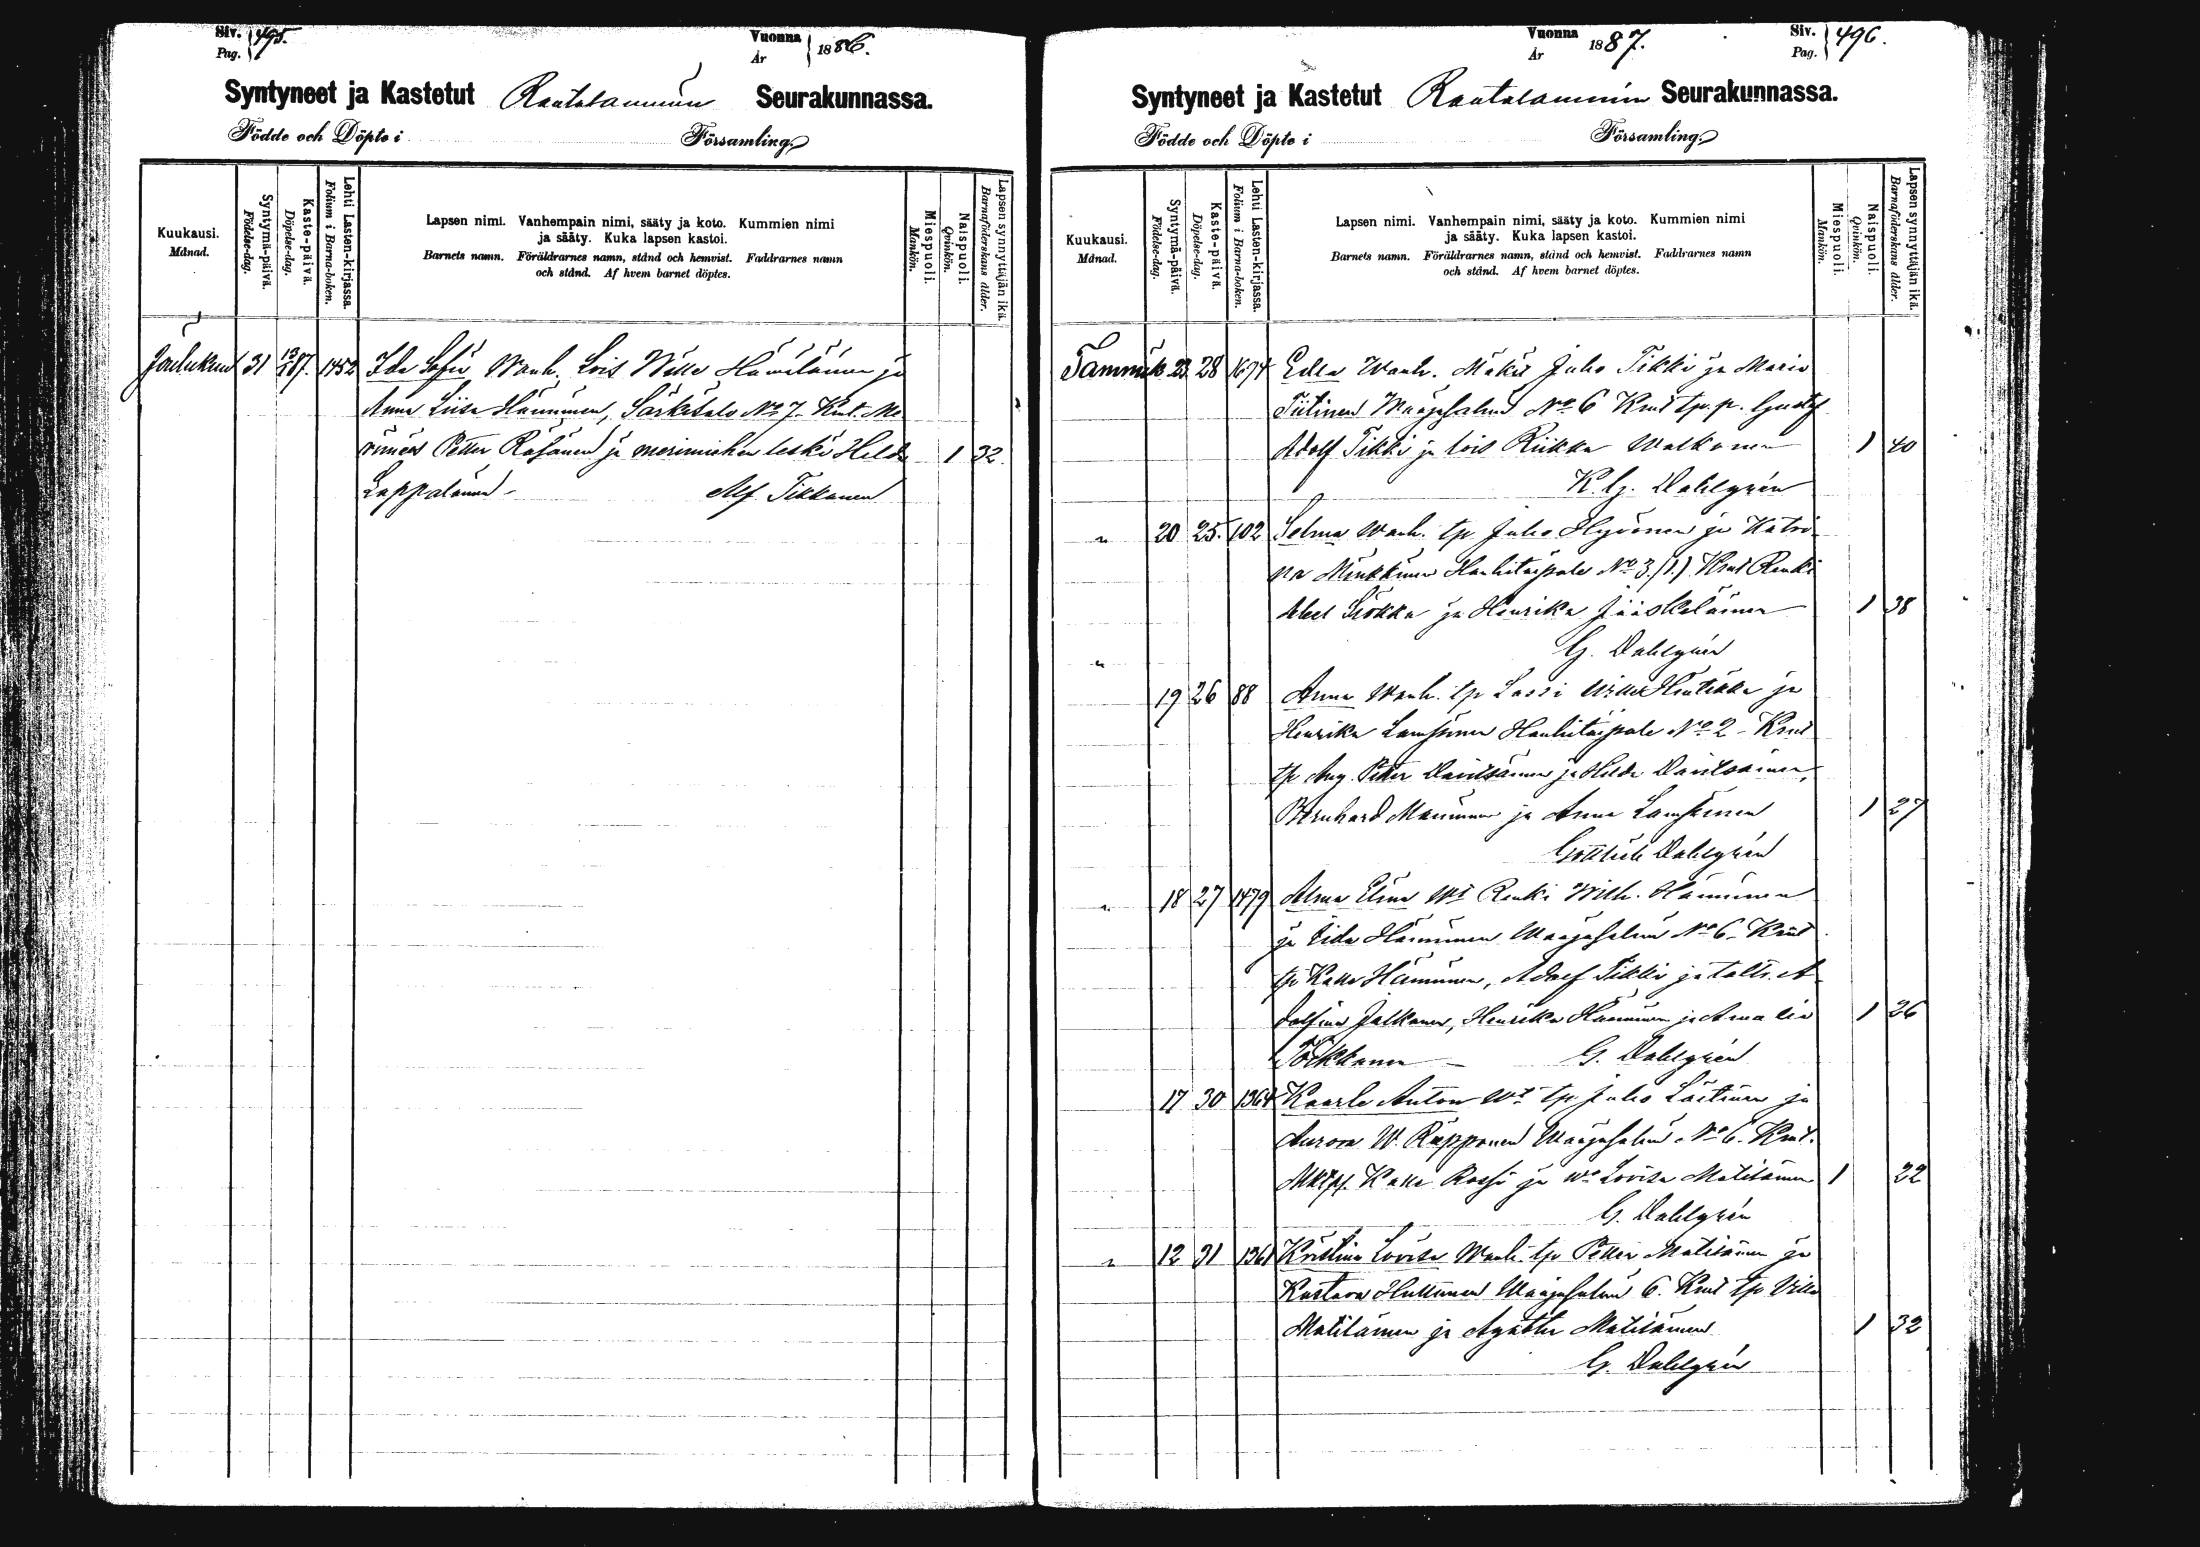 Siv. Pag. 495.
Vuonna År 1886.
Syntyneet ja Kastetut Rautalammin Seurakunnassa.
Födde och Döpte i Församling.
Kuukausi. Månad.
Syntymä-päivä. Födelse-dag.
Kaste-päivä. Döpelse-dag.
Lehti Lasten-kirjassa. Folium i Barna-boken.
Lapsen nimi. Vanhempain nimi, sääty ja koto. Kummien nimi
ja sääty. Kuka lapsen kastoi.
Barnets namn. Föräldrarnes namn, stånd och hemvist. Faddrarnes namn
och stånd. Af hvem barnet döptes.
Miespuoli. Mankön.
Naispuoli. Qvinkön.
Lapsen synnyttäjän ikä. Barnaföderskans ålder.
Jouluкuu 31 13/1 87. 1452 Ida Sofia Wanh. Lois Wille Hämäläinen ja
Anna Liisa Hänninen, Särkisalo No 7. Kmt. Me-
Petter Räsänen ja merimiehen leski Helda 1 32.
Lappalainen - Alf. Tikkanen
Vuonna År 1887.
Siv. Pag. 496.
Syntyneet ja Kastetut Rautalammin Seurakunnassa.
Födde och Döpte i Församling.
Kuukausi. Månad.
Syntymä-päivä. Födelse-dag.
Kaste-päivä. Döpelse-dag.
Lehti Lasten-kirjassa. Folium i Barna-boken.
Lapsen nimi. Vanhempain nimi, sääty ja koto. Kummien nimi
ja sääty. Kuka lapsen kastoi.
Barnets namn. Föräldrarnes namn, stånd och hemvist. Faddrarnes namn
och stånd. Af hvem barnet döptes.
Miespuoli. Mankön.
Naispuoli. Qvinkön.
Lapsen synnyttäjän ikä. Barnaföderskans ålder.
Tammik. 23 28 1674 Edla Wanh. Mäkit Juho Tikki ja Maria
Tiitinen Waajasalmi No 6 Kmt tp. p. Gustaf
Adolf Tikki ja lois Riikka Walkonen 1 40
K. G. Dahlgrén
" 20 25. 102 Selma Wanh. tp Juho Hyvönen ja Katri-
na Minkkinen Hankitaipale No 3. (1.) Kmt Renki
Abel Siokka ja Henrika Jääskeläinen 1 38
" G. Dahlgrén
19 26 88 Anna Wanh. tp Lassi Wille Hintikka ja
Henrika Lamsinen Hankitaipale No 2 - Kmt
tp Aug. Petter Davidsainen ja Hilda Davidsainen,
Bernhard Manninen ja Anna Lamsinen 1 27
Gottlieb Dahlgrén
" 18 27 1479 Alma Elina Wt Renki Wilh. Hänninen
ja Eida Hänninen Waajasalmi No 6 - Kmt
tp Kalle Hänninen, Adolf Tikki ja A-
dolfina Jalkanen, Henrika Hänninen ja Ama lia 1 26
Tolkkanen - G. Dahlgrén
17 30 1364 Kaarle Anton Wt tp Juho Laitinen ja
Aurora W. Rapponen Waajasalmi No 6. Kmt.
Kalle Rossi ja Wo Lovisa Matilainen 1 22
G. Dahlgrén
" 12 31 1361 Kristina Lovisa Wanh. tp Petter Matilainen ja
Kustava Huttunen Waajasalmi 6. Kmt tp Ville
Matilainen ja Agatha Matilainen 1 32
G. Dahlgrén